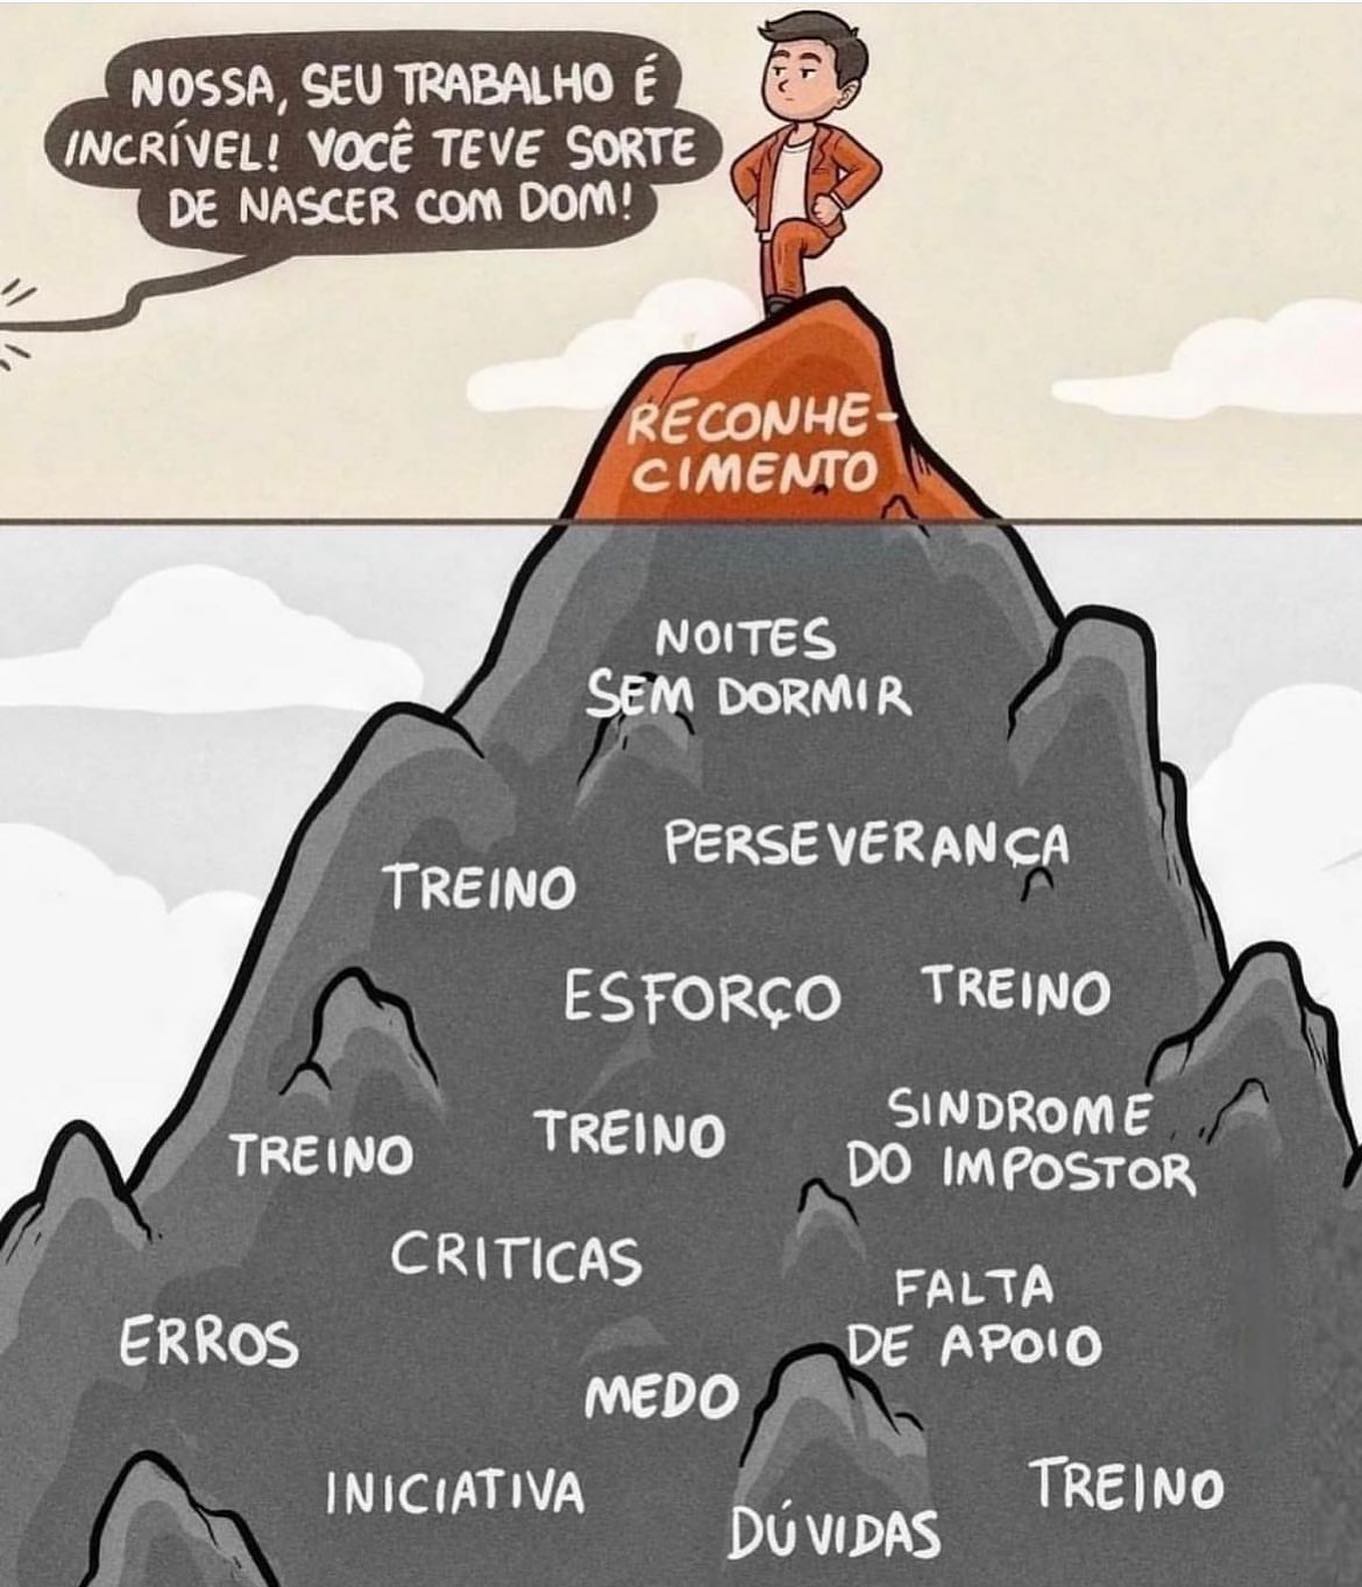 NOSSA, SEU TRABALHO É
INCRÍVEL! VOCÊ TEVE SORTE
DE NASCER COM DOM!
RECONHE-
CIMENTO
NOITES
SEM DORMIR
PERSEVERANÇA
TREINO
ESFORÇO
TREINO
TREINO
TREINO
SINDROME
DO IMPOSTOR
CRITICAS
FALTA
DE APOIO
ERROS
MEDO
INICIATIVA
TREINO
DÚVIDAS